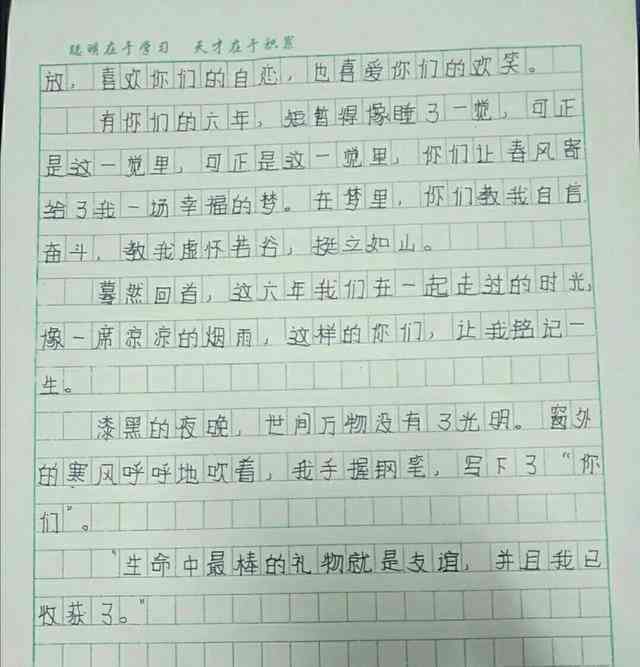 聪明在于学习 天才在于积累
放，喜欢你们的自恋，也喜爱你们的欢笑。
有你们的六年，短暂得像睡了一觉，可正
是这一觉里，可正是这一觉里，你们让春风寄
给了我一场幸福的梦。在梦里，你们教我自信
奋斗，教我虚怀若谷，挺立如山。
蓦然回首，这六年我们在一起走过的时光，
像一席凉凉的烟雨，这样的你们，让我铭记一
生。
漆黑的夜晚，世间万物没有了光明。窗外
的寒风呼呼地吹着，我手握钢笔，写下了“你
们”。
“生命中最棒的礼物就是友谊，并且我已
收获了。”